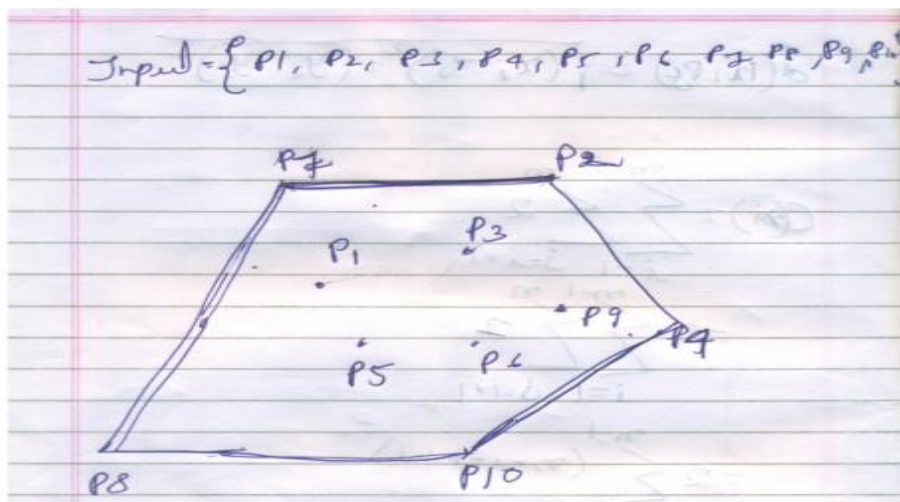 Input = { P1, P2, P3, P4, P5, P6 P7 P8, P9, P10
P7 P2
P3
P1
P9
P4
P5 P6
P8 P10